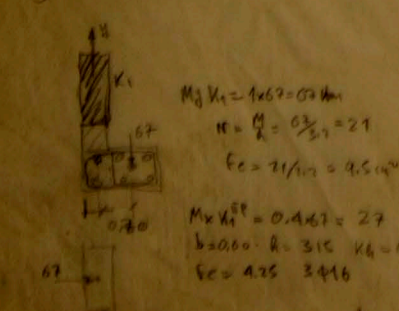 y
K₁
67
0,40
67
My K₁ = 1x67 = 67 knm
N = M/h = 67/3.2 = 21
Fe = 21/2.2 = 9.5 cm²
Mx K₁ = 0.4x67 = 27
b = 0,60 h = 315
Fe = 4.25 3φ16